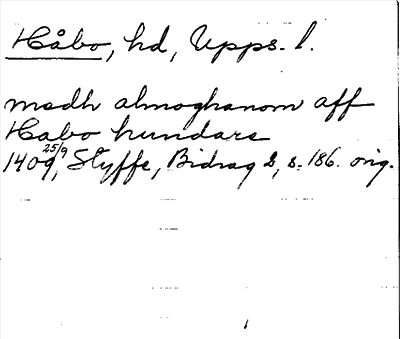 Håbo, hd, Upps. l.
medh almoghanom aff
Habo hundare
1409 25/9, Styffe, Bidrag 2, s. 186. orig.